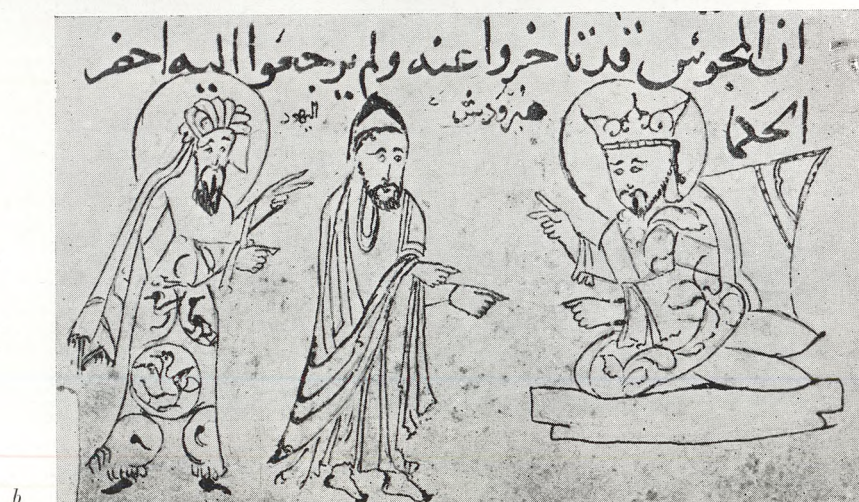 ان المجوس قد تاخروا عنه ولم يرجعوا اليه احضر
الحكما
هيرودس
اليهود
b